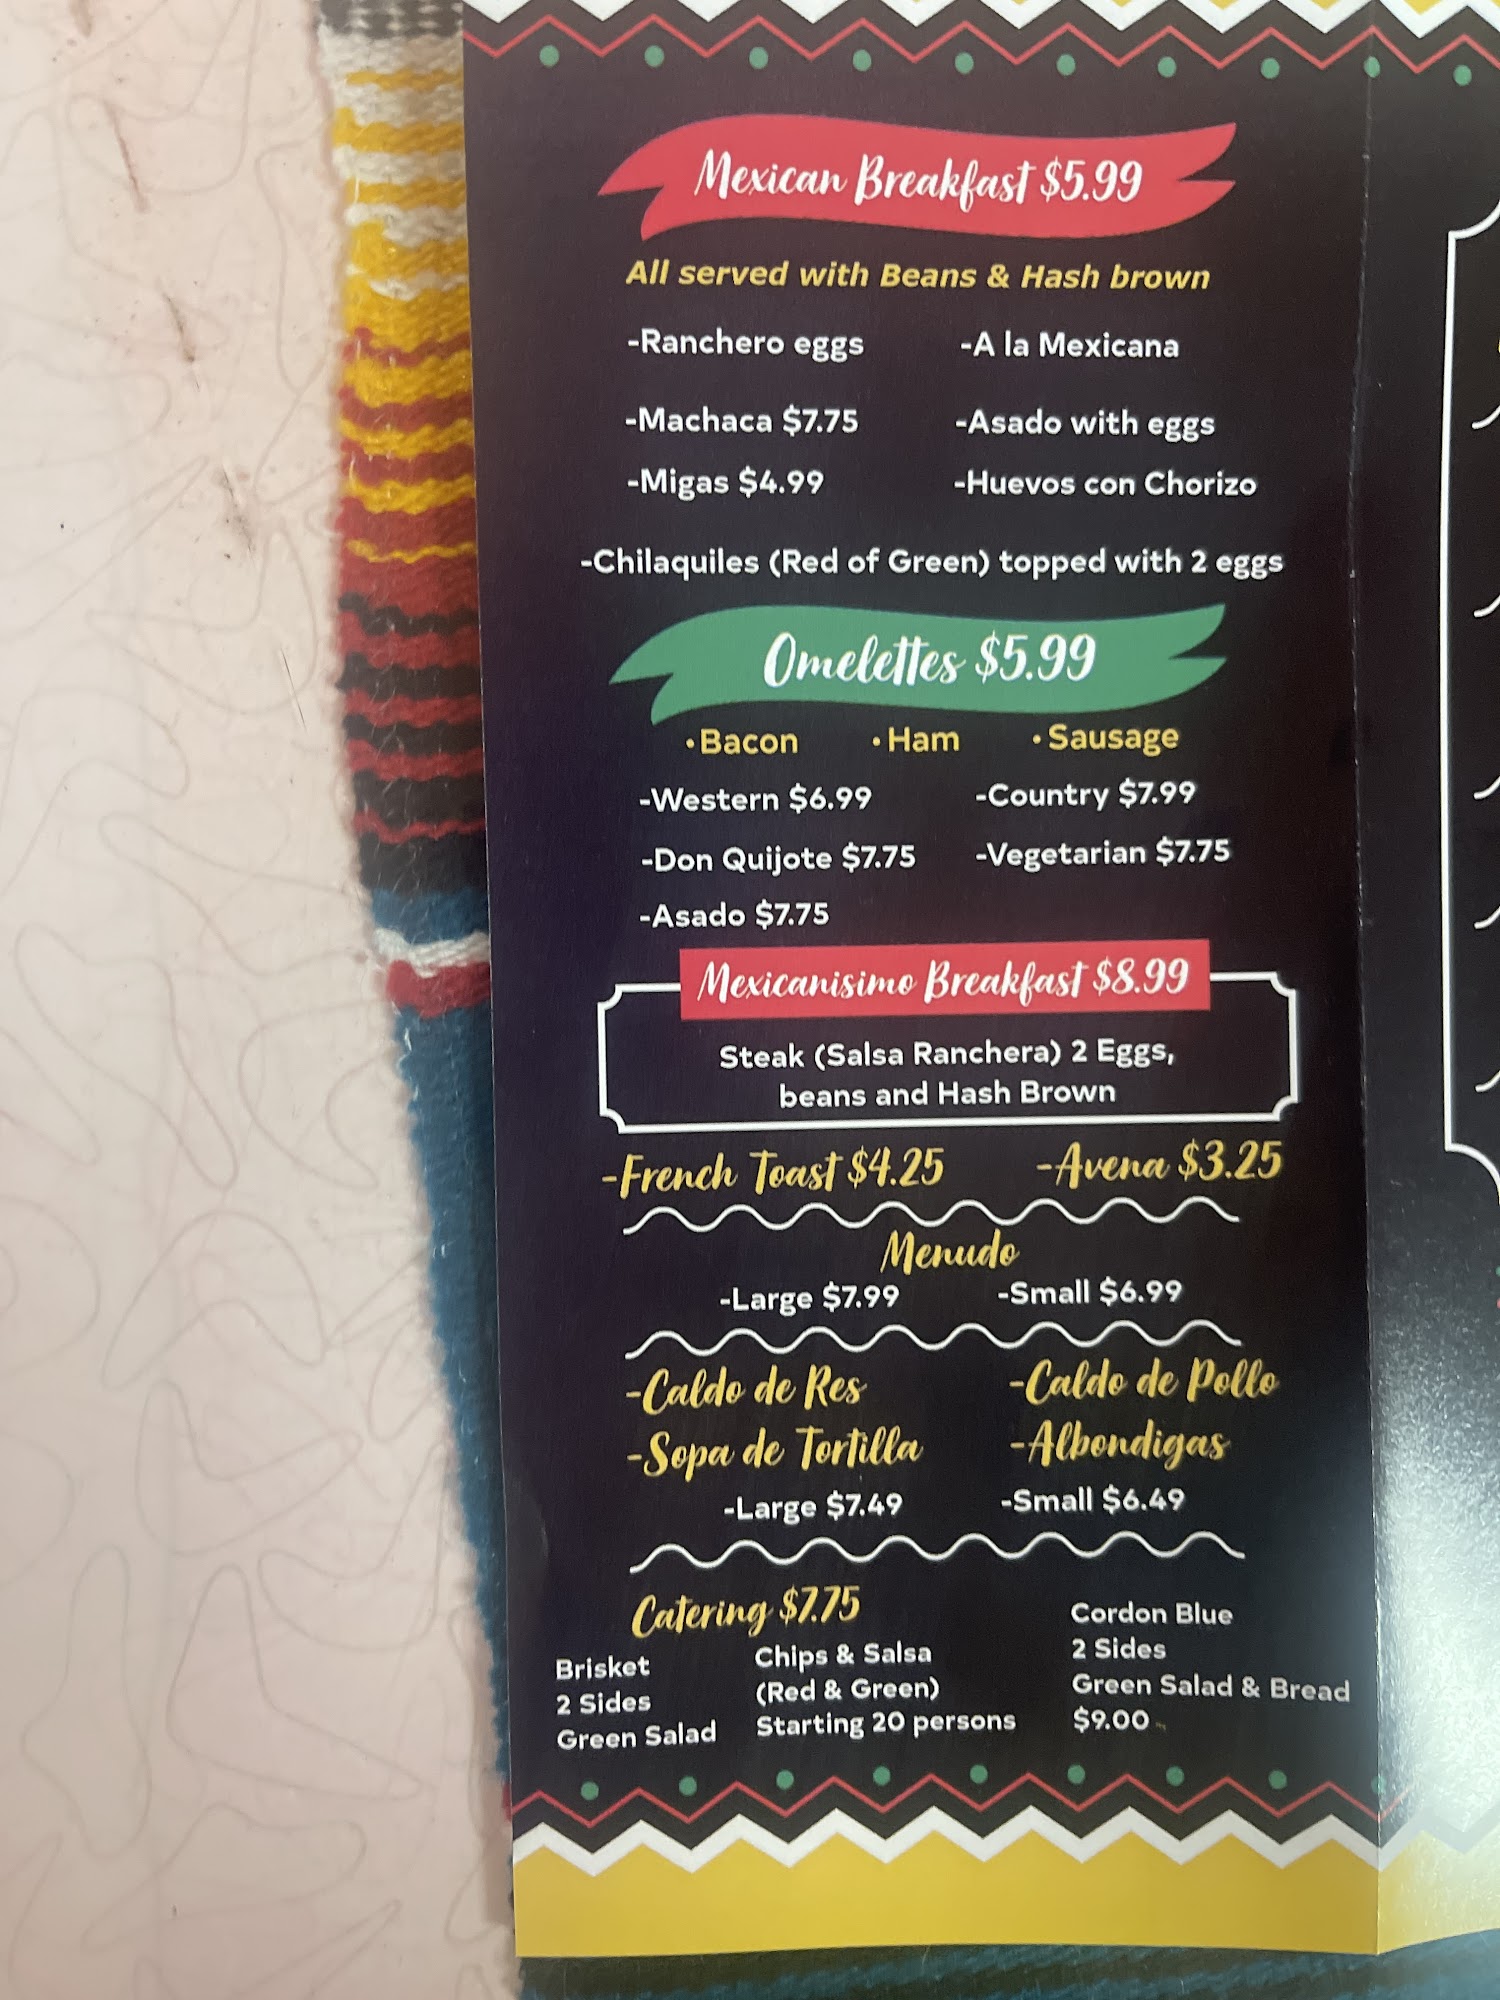 Mexican Breakfast $5.99
All served with Beans & Hash brown
-Ranchero eggs -A la Mexicana
-Machaca $7.75 -Asado with eggs
-Migas $4.99 -Huevos con Chorizo
-Chilaquiles (Red of Green) topped with 2 eggs
Omelettes $5.99
•Bacon •Ham •Sausage
-Western $6.99 -Country $7.99
-Don Quijote $7.75 -Vegetarian $7.75
-Asado $7.75
Mexicanisimo Breakfast $8.99
Steak (Salsa Ranchera) 2 Eggs,
beans and Hash Brown
-French Toast $4.25 -Avena $3.25
Menudo
-Large $7.99 -Small $6.99
-Caldo de Res -Caldo de Pollo
-Sopa de Tortilla -Albondigas
-Large $7.49 -Small $6.49
Catering $7.75
Brisket
2 Sides
Green Salad
Chips & Salsa
(Red & Green)
Starting 20 persons
Cordon Blue
2 Sides
Green Salad & Bread
$9.00